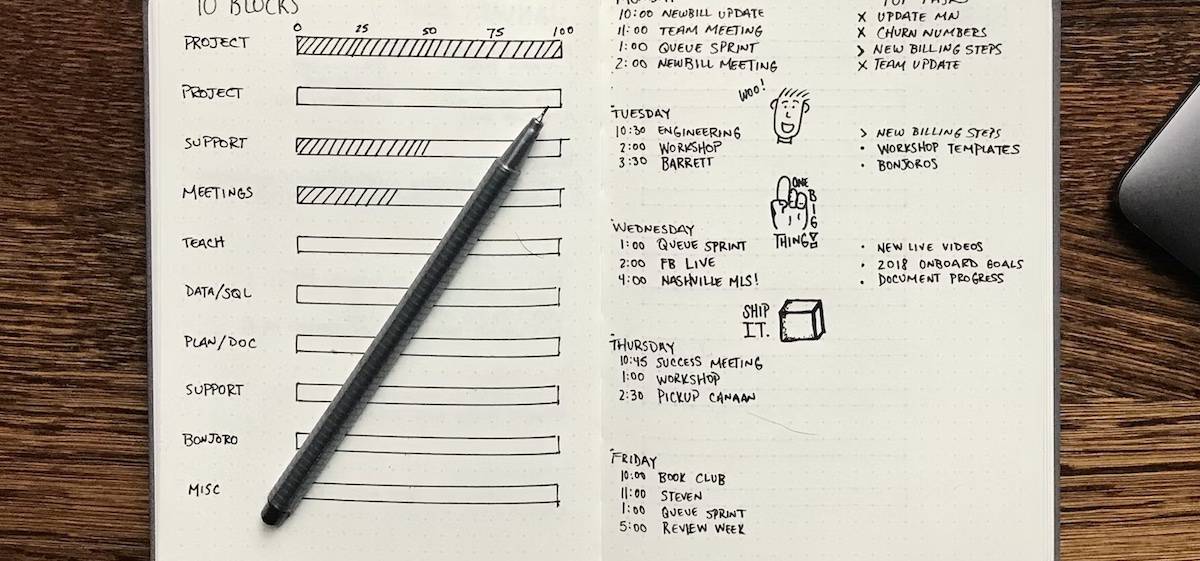 10 BLOCKS
0 25 50 75 100
PROJECT
PROJECT
SUPPORT
MEETINGS
TEACH
DATA/SQL
PLAN/DOC
SUPPORT
BONJORO
MISC
10:00 NEWBILL UPDATE
11:00 TEAM MEETING
1:00 QUEUE SPRINT
2:00 NEWBILL MEETING
X UPDATE MN
X CHURN NUMBERS
> NEW BILLING STEPS
X TEAM UPDATE
WOO!
TUESDAY
10:30 ENGINEERING
2:00 WORKSHOP
3:30 BARRETT
> NEW BILLING STEPS
• WORKSHOP TEMPLATES
• BONJOROS
ONE
BIG
THING!
WEDNESDAY
1:00 QUEUE SPRINT
2:00 FB LIVE
4:00 NASHVILLE MLS!
• NEW LIVE VIDEOS
• 2018 ONBOARD GOALS
• DOCUMENT PROGRESS
SHIP
IT.
THURSDAY
10:45 SUCCESS MEETING
1:00 WORKSHOP
2:30 PICKUP CANAAN
FRIDAY
10:00 BOOK CLUB
11:00 STEVEN
1:00 QUEUE SPRINT
5:00 REVIEW WEEK